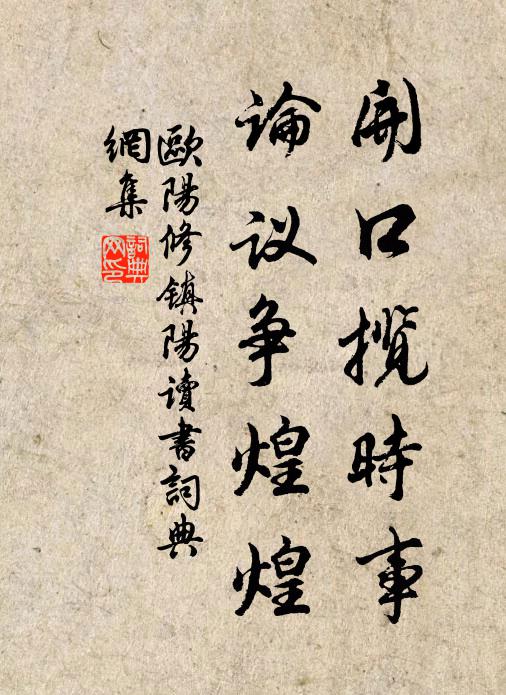 開口揽時事
論议争煌煌
歐陽修镇陽读書詞典
網集
詞典
网印